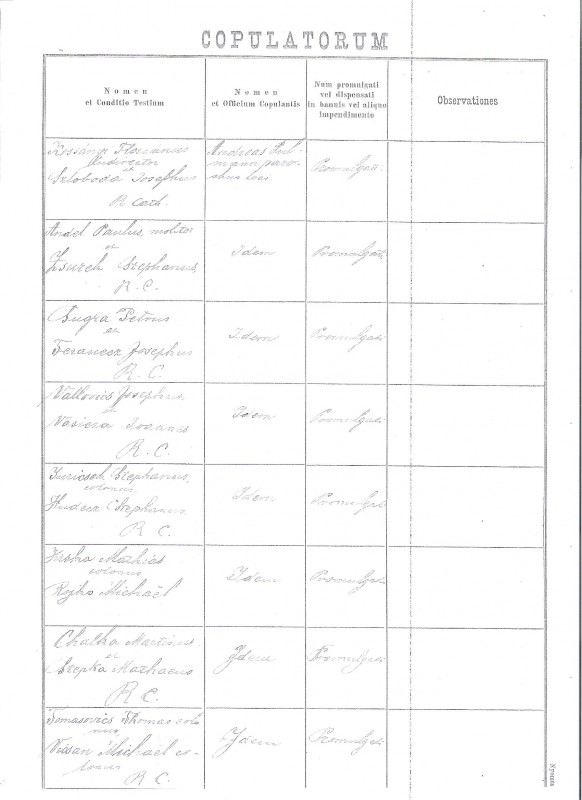 COPULATORUM
Nomen
et Conditio Testium
Nomen
et Officium Copulantis
Num promulgati
vel dispensati
in bannis vel aliquo
impendimento
Observationes
Florianus
et
Szloboda Josephus
R. Cath.
Andreas
mann paro-
chus loci
Promulgati
Andel Paulus, molitor
et
Stephanus
R. C.
Idem
Promulgati
Bugra Petrus
et
Ferancsz Josephus
R. C.
Idem
Promulgati
Vallovits Josephus
et
Vasicza Joannes
R. C.
Idem
Promulgati
Juricsek Stephanus,
colonus
Hudecz Stephanus
R. C.
Idem
Promulgati
Mathias
colonus
Rojko Michaël
Idem
Promulgati
Chalka Martinus
et
Szepka Mathaeus
R. C.
Idem
Promulgati
Tomasovics Thomas colo
nus,
Vissan Michael co-
lonus
R. C.
Idem
Promulgati